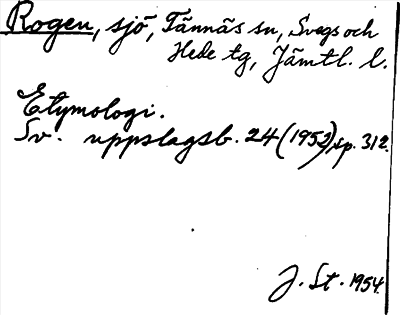 Rogen, sjö, Tännäs sn, Svegs och
Hede tg, Jämtl. l.
Etymologi.
Sv. uppslagsb. 24 (1952), sp. 312.
J. St. 1954.